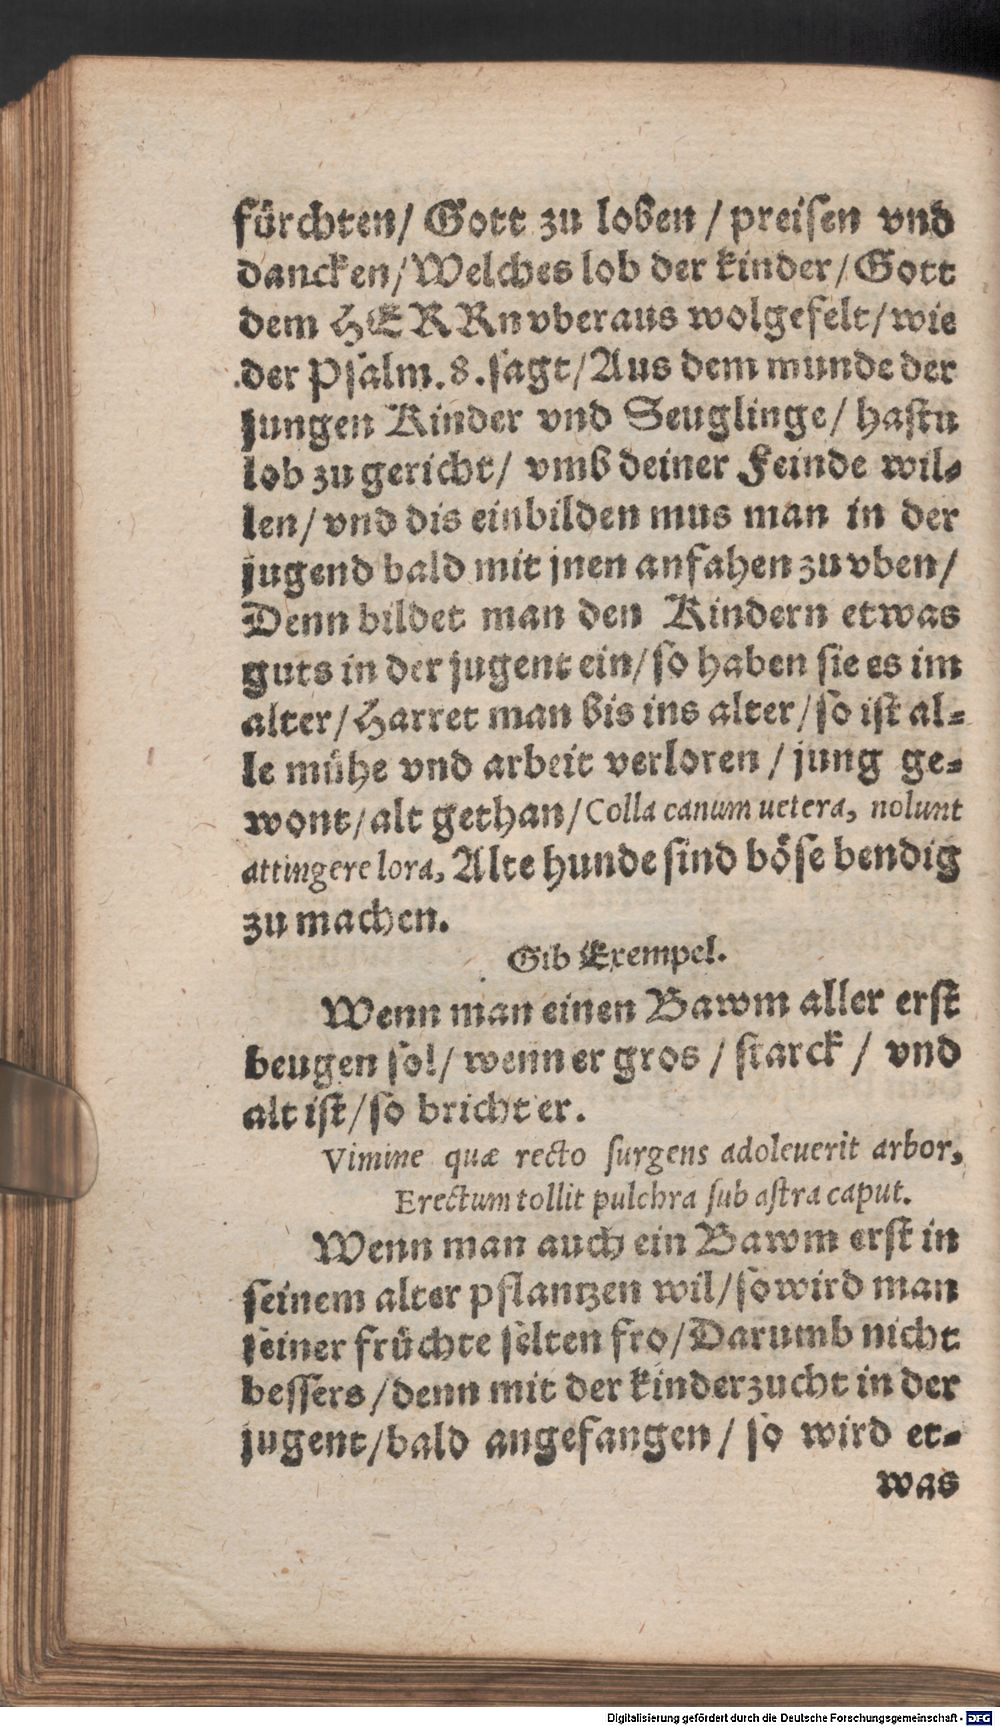 fürchten/ Gott zu loben / preisen vnd
dancken/ Welches lob der kinder/ Gott
dem HERRn vberaus wolgefelt/ wie
der Psalm. 8. sagt/ Aus dem munde der
jungen Kinder vnd Seuglinge/ hastu
lob zu gericht/ vmb deiner Feinde wil-
len/ vnd dis einbilden mus man in der
jugend bald mit jnen anfahen zu vben/
Denn bildet man den Kindern etwas
guts in der jugent ein/ so haben sie es im
alter/ Harret man bis ins alter/ so ist al-
le mühe vnd arbeit verloren / jung ge-
wont/ alt gethan/ Colla canum uetera, nolunt
attingere lora, Alte hunde sind böse bendig
zu machen.
Gib Exempel.
Wenn man einen Bawm aller erst
beugen sol/ wenn er gros / starck / vnd
alt ist/ so bricht er.
Vimine quæ recto surgens adoleuerit arbor,
Erectum tollit pulchra sub astra caput.
Wenn man auch ein Bawm erst in
seinem alter pflantzen wil/ so wird man
seiner früchte selten fro/ Darumb nicht
bessers / denn mit der kinderzucht in der
jugent/ bald angefangen / so wird et-
was
Digitalisierung gefördert durch die Deutsche Forschungsgemeinschaft - DFG